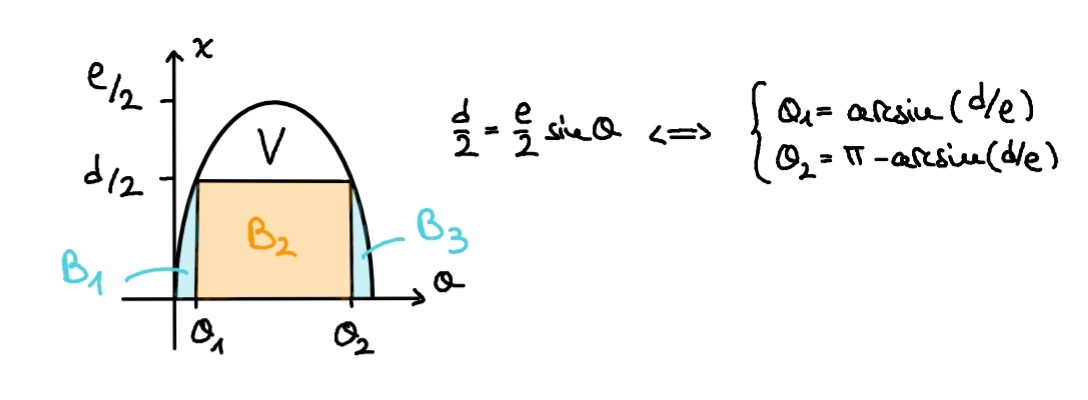 x
e/2
V
d/2
B₂
B₁
B₃
θ
θ₁
θ₂
d/2 = e/2 sin θ <=> { θ₁ = arcsin (d/e)
θ₂ = π - arcsin (d/e)